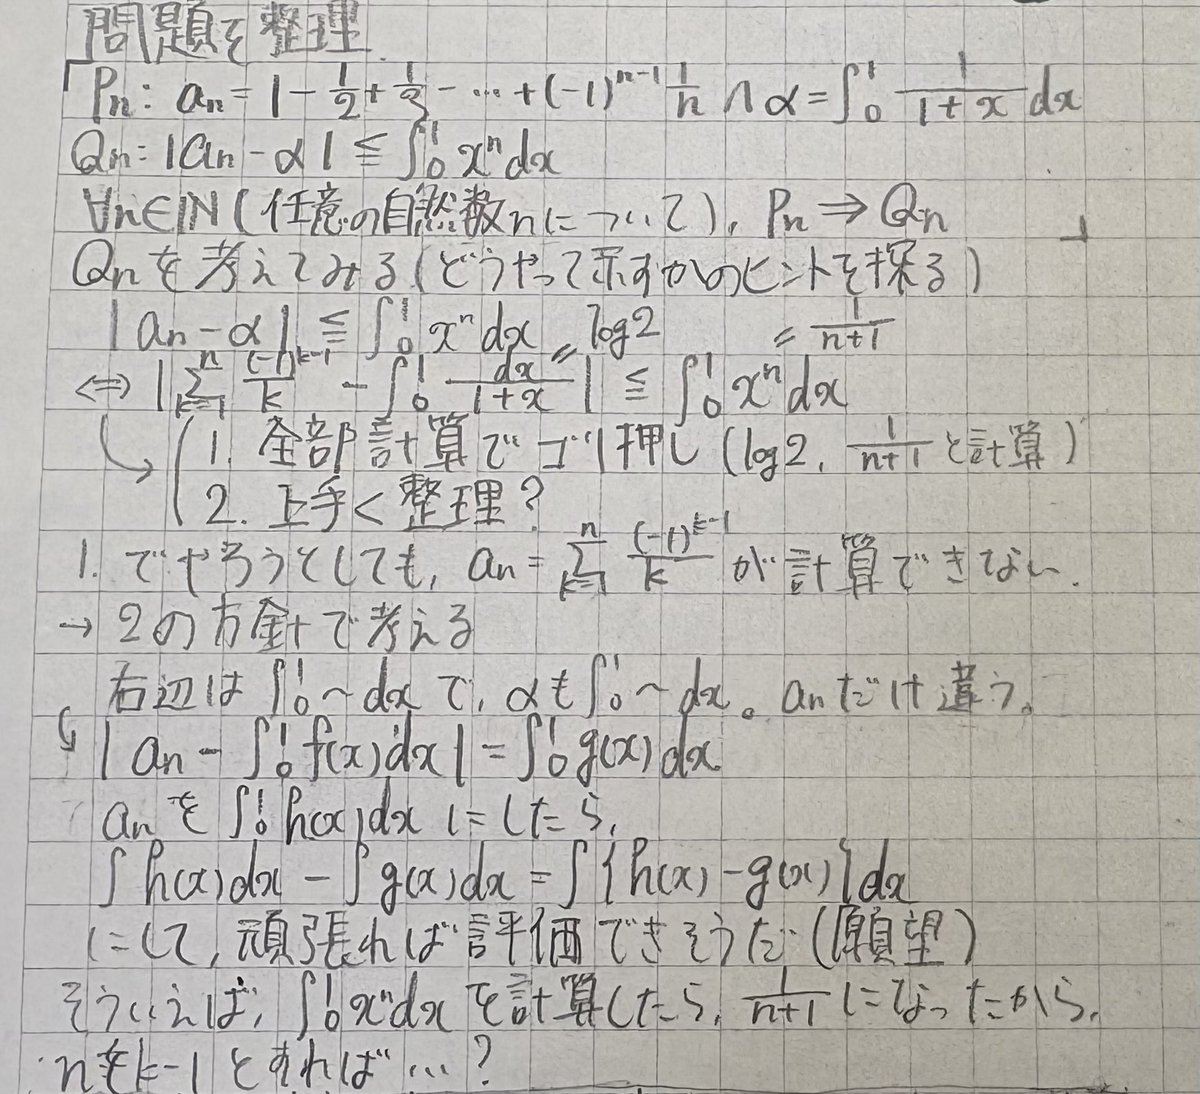 問題を整理
「Pn: an = 1 - 1/2 + 1/3 - … + (-1)^{n-1} 1/n ∧ α = ∫₀¹ 1/(1+x) dx
Qn: |an - α| ≦ ∫₀¹ xⁿdx
∀n∈ℕ (任意の自然数nについて), Pn ⇒ Qn 」
Qnを考えてみる(どうやって示すかのヒントを探る)
|an - α| ≦ ∫₀¹ xⁿdx = log2 = 1/(n+1)
⇔ |Σ_{k=1}^{n} (-1)^{k-1}/k - ∫₀¹ dx/(1+x)| ≦ ∫₀¹ xⁿdx
1. 全部計算でゴリ押し (log2, 1/(n+1)と計算)
2. 上手く整理?
1. でやろうとしても, an = Σ_{k=1}^{n} (-1)^{k-1}/k が計算できない.
→ 2の方針で考える
右辺は ∫₀¹~dx で, αも ∫₀¹~dx。anだけ違う。
|an - ∫₀¹ f(x)dx| = ∫₀¹ g(x)dx
anを ∫₀¹ h(x)dx にしたら,
∫h(x)dx - ∫g(x)dx = ∫{h(x) - g(x)}dx
にして, 頑張れば評価できそうだ (願望)
そういえば, ∫₀¹ xⁿdx を計算したら, 1/(n+1) になったから,
nをk-1とすれば…?